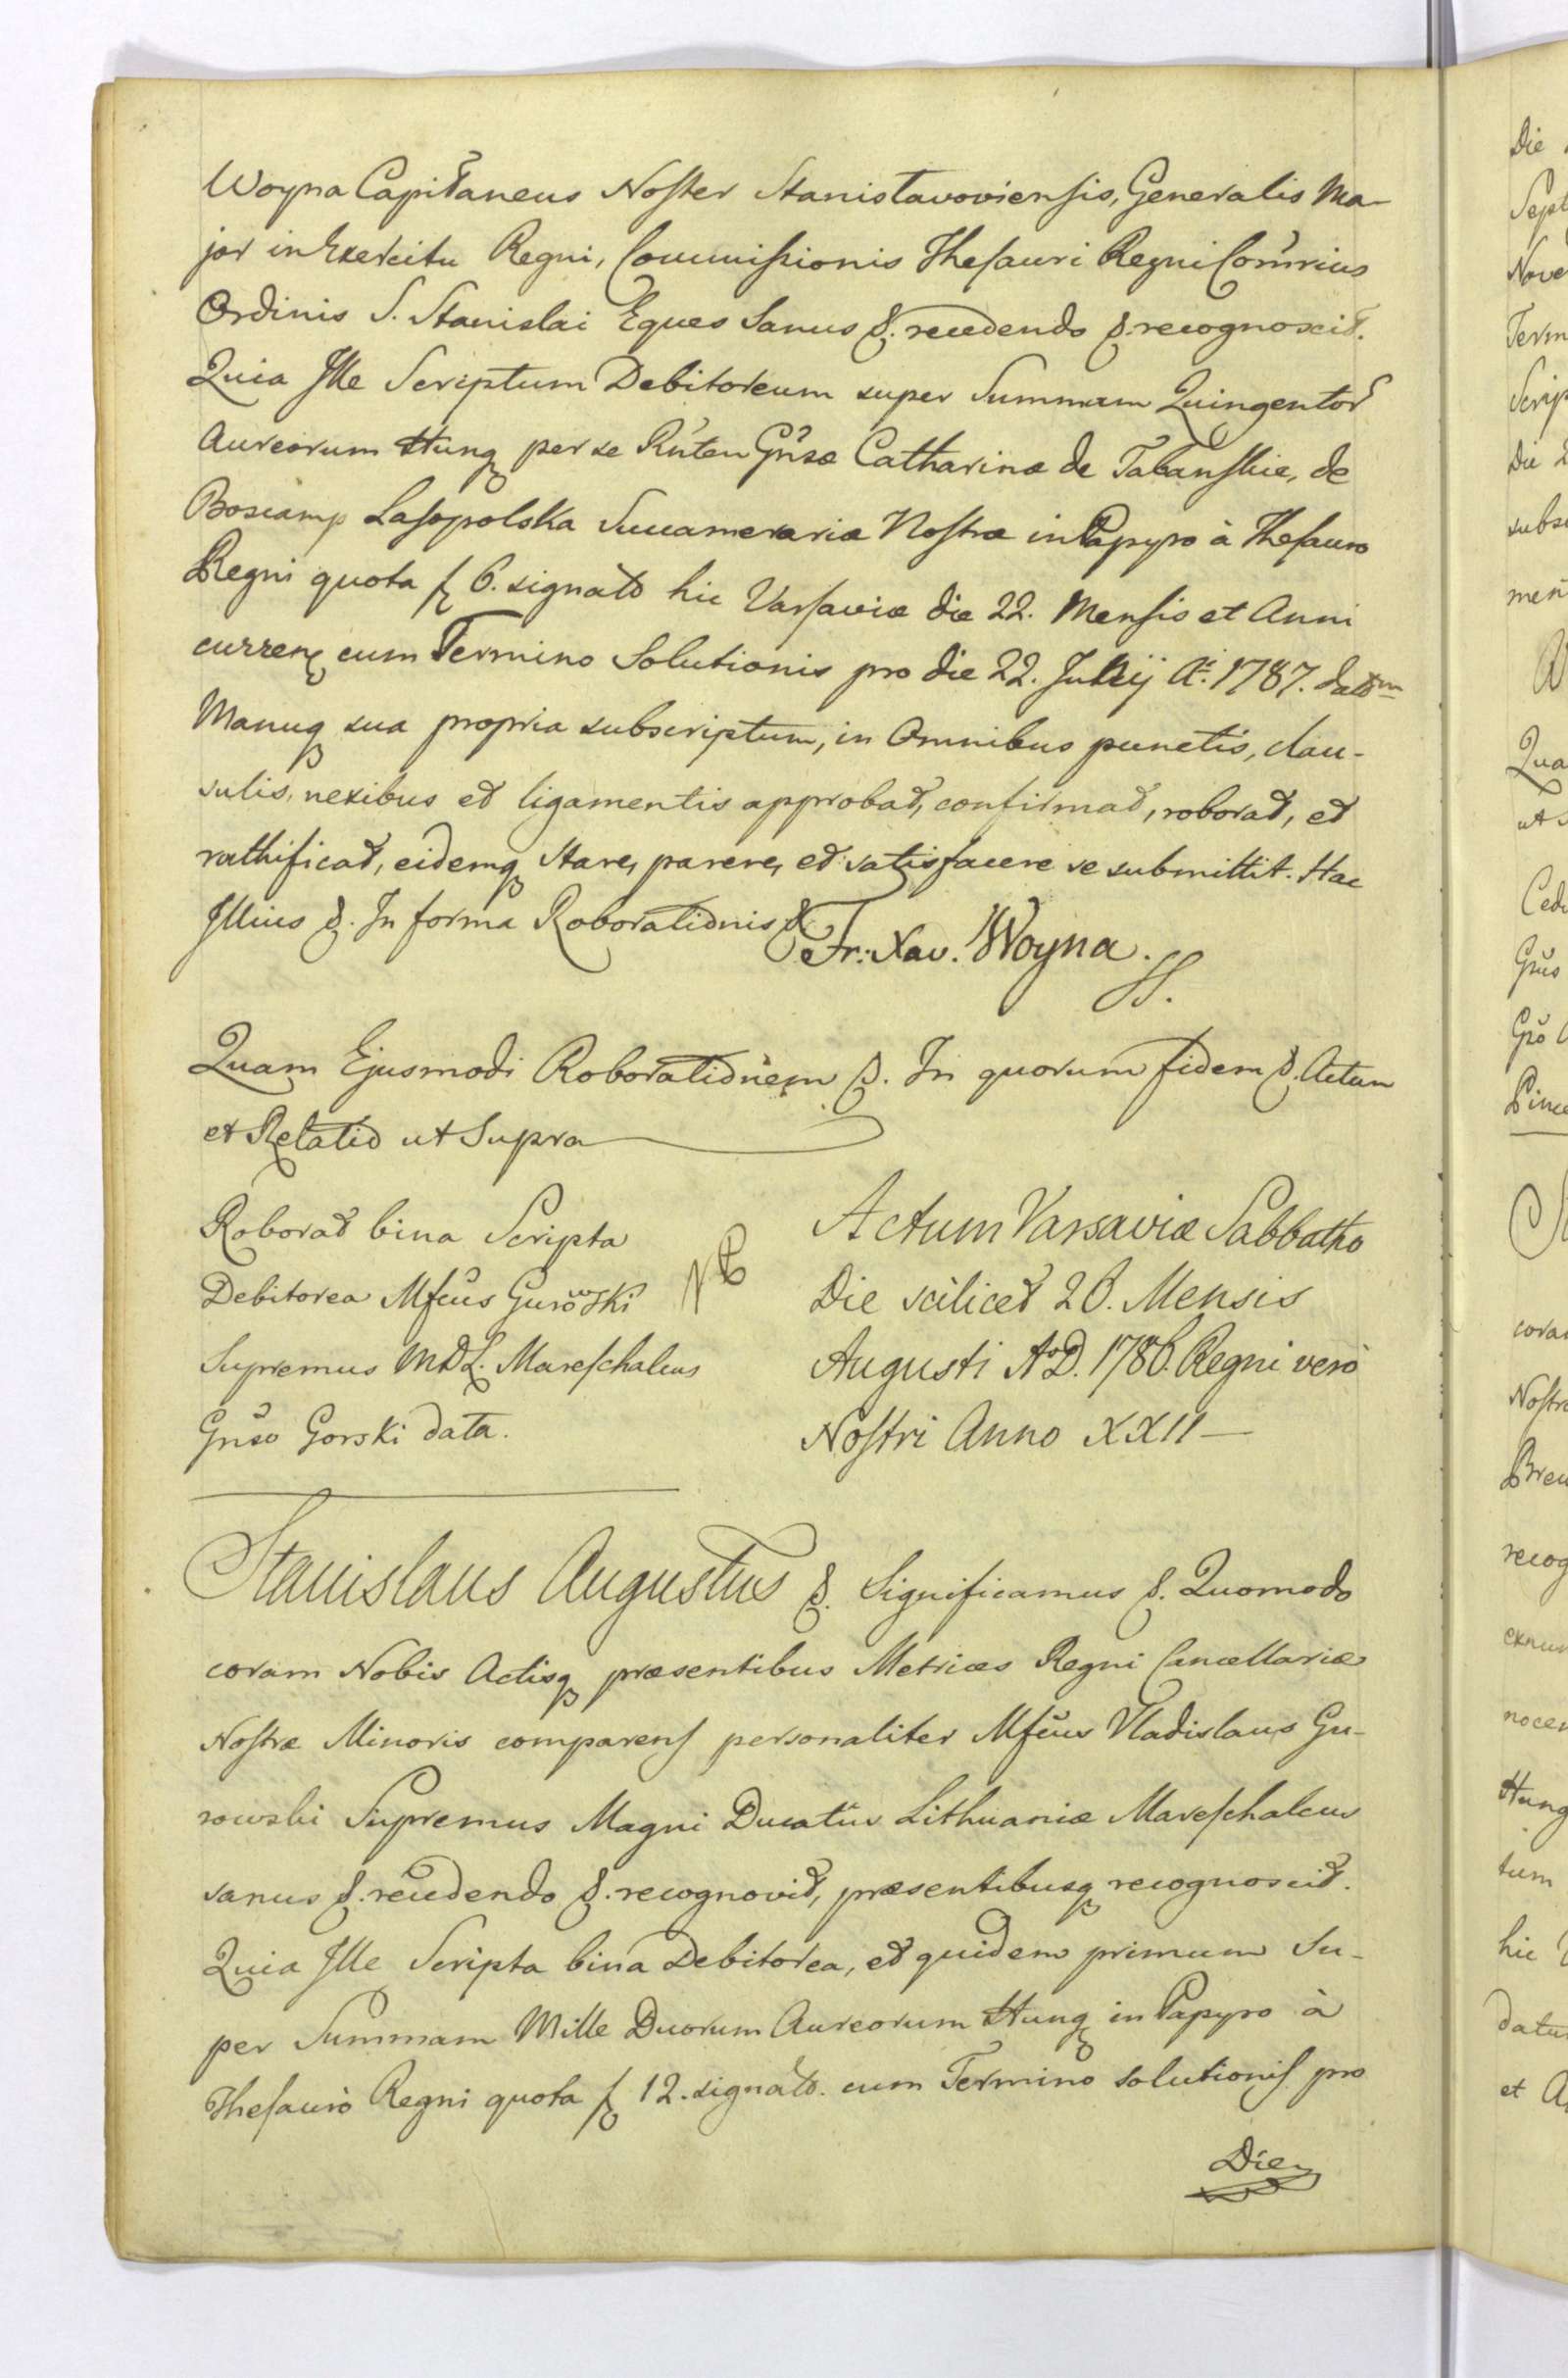 Woyna Capitaneus Noster Stanislavoviensis, Generalis Ma-
jor in Exercitu Regni, Commissionis Thesauri Regni Com̃rius
Ordinis S. Stanislai Eques Sanus &. recedendo &. recognoscit.
Quia Ille Scriptum Debitoreum super Summam Quingentor
Aureorum Hung per se Rnten Gnsæ Catharinæ de Tabanskie, de
Boscamp Lasopolska Succamerariæ Nostræ in Papyro à Thesauro
Regni quota f 6. signato hic Varsaviæ die 22. Mensis et Anni
curren cum Termino Solutionis pro die 22. Julij A. 1787. datum
Manuq sua propria subscriptum, in Omnibus punctis, clau-
sulis, nexibus et ligamentis approbat, confirmat, roborat, et
rathificat, eidemq stare, parere, et satisfacere se submittit. Hac
Illius &. In forma Roborationis &
Fr: Xav. Woyna.
Quam Ejusmodi Roborationem &. In quorum fidem &. Actum
et Relatio ut Supra
Roborat bina Scripta
Debitorea Mfcus Gurowski
Supremus MDL. Mareschalcus
Gnso Gorski data.
NB
Actum Varsaviæ Sabbatho
Die scilicet 26. Mensis
Augusti AoD. 1786. Regni verò
Nostri Anno XXII
Stanislaus Augustus &. Significamus &. Quomodo
coram Nobis Actisq præsentibus Metrices Regni Cancellariæ
Nostræ Minoris comparens personaliter Mfcus Vladislaus Gu-
rowski Supremus Magni Ducatûs Lithuaniæ Mareschalcus
sanus &. recedendo &. recognovit, præsentibusq recognoscit.
Quia Ille Scripta bina Debitorea, et quidem primum Su-
per Summam Mille Duorum Aureorum Hung in Papyro à
Thesauro Regni quota f 12. signato. cum Termino solutionis pro
Die